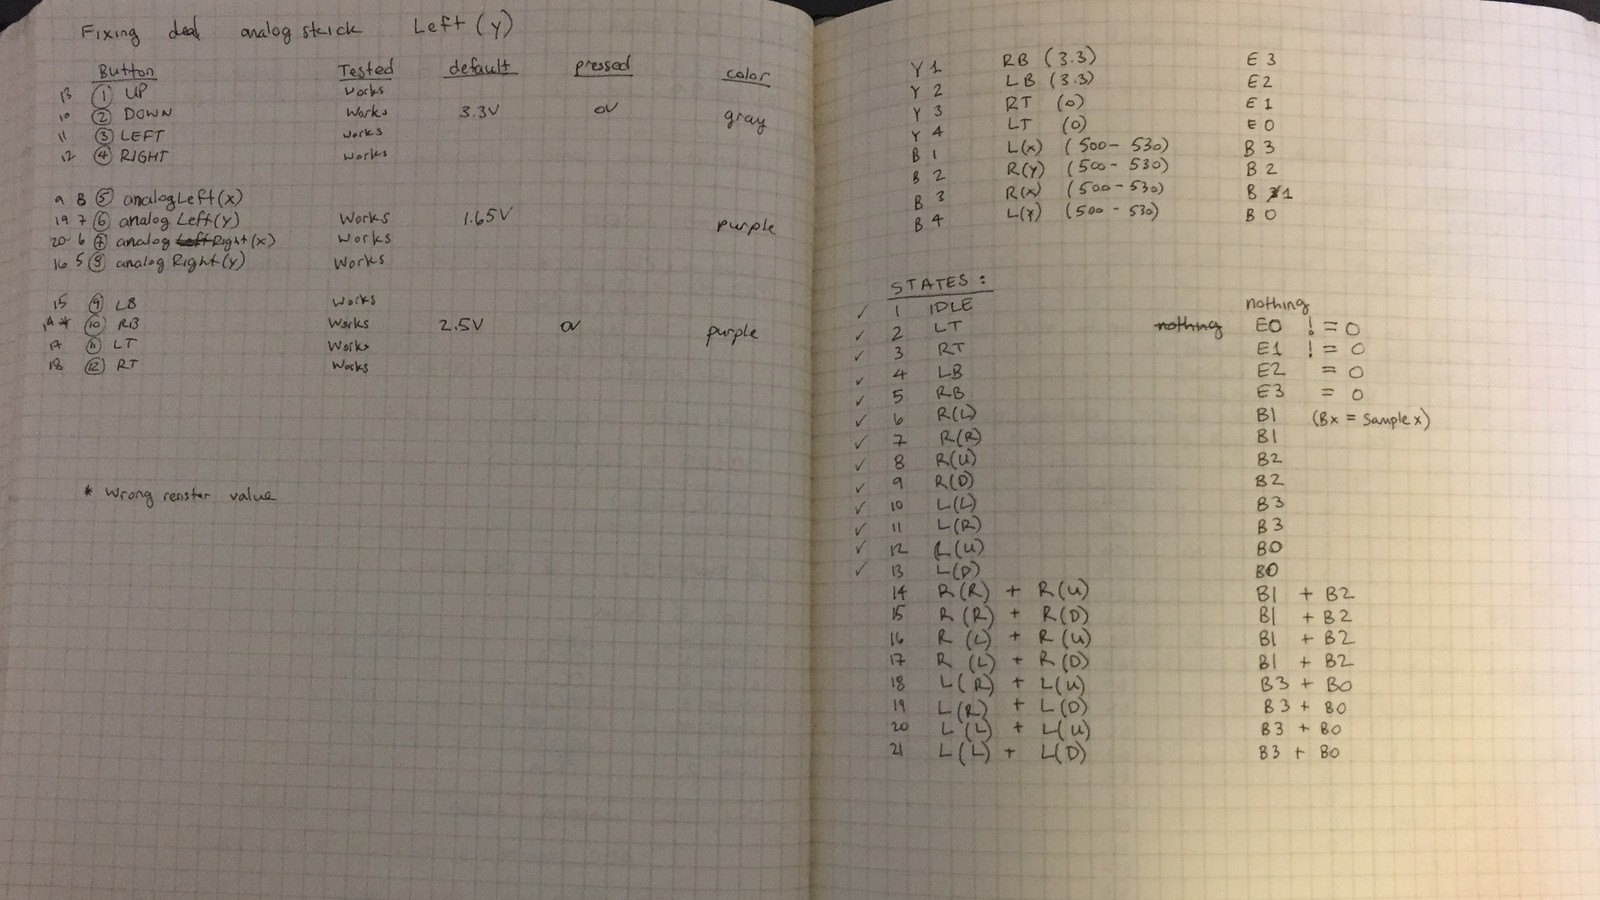 Fixing dead analog stick Left (y)
Button Tested default pressed color
13 1 UP Works
10 2 DOWN Works 3.3V 0V gray
11 3 LEFT Works
12 4 RIGHT Works
9 8 5 analog Left (x)
19 7 6 analog Left (y) Works 1.65V purple
20 6 7 analog Left Right (x) Works
16 5 8 analog Right (y) Works
15 9 LB Works
14 * 10 RB Works 2.5V 0V purple
17 11 LT Works
18 12 RT Works
* Wrong resistor value
Y 1 RB (3.3) E 3
Y 2 LB (3.3) E 2
Y 3 RT (0) E 1
Y 4 LT (0) E 0
B 1 L(x) (500 - 530) B 3
B 2 R(y) (500 - 530) B 2
B 3 R(x) (500 - 530) B 1
B 4 L(Y) (500 - 530) B 0
STATES :
✓ 1 IDLE nothing
✓ 2 LT nothing E0 != 0
✓ 3 RT E1 != 0
✓ 4 LB E2 = 0
✓ 5 RB E3 = 0
✓ 6 R(L) B1 (Bx = Sample x)
✓ 7 R(R) B1
✓ 8 R(U) B2
✓ 9 R(D) B2
✓ 10 L(L) B3
✓ 11 L(R) B3
✓ 12 L(U) B0
✓ 13 L(D) B0
14 R(R) + R(U) B1 + B2
15 R(R) + R(D) B1 + B2
16 R(L) + R(U) B1 + B2
17 R(L) + R(D) B1 + B2
18 L(R) + L(U) B3 + B0
19 L(R) + L(D) B3 + B0
20 L(L) + L(U) B3 + B0
21 L(L) + L(D) B3 + B0